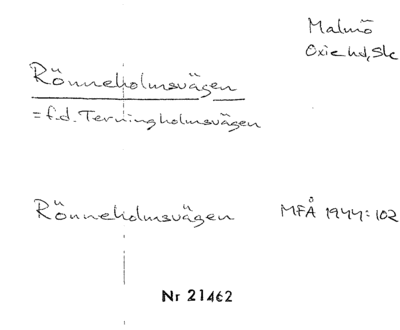 Malmö
Oxie hd, Sk
Rönneholmsvägen
= f.d. Terningholmsvägen
Rönneholmsvägen MFÅ 1944:102
Nr 21462